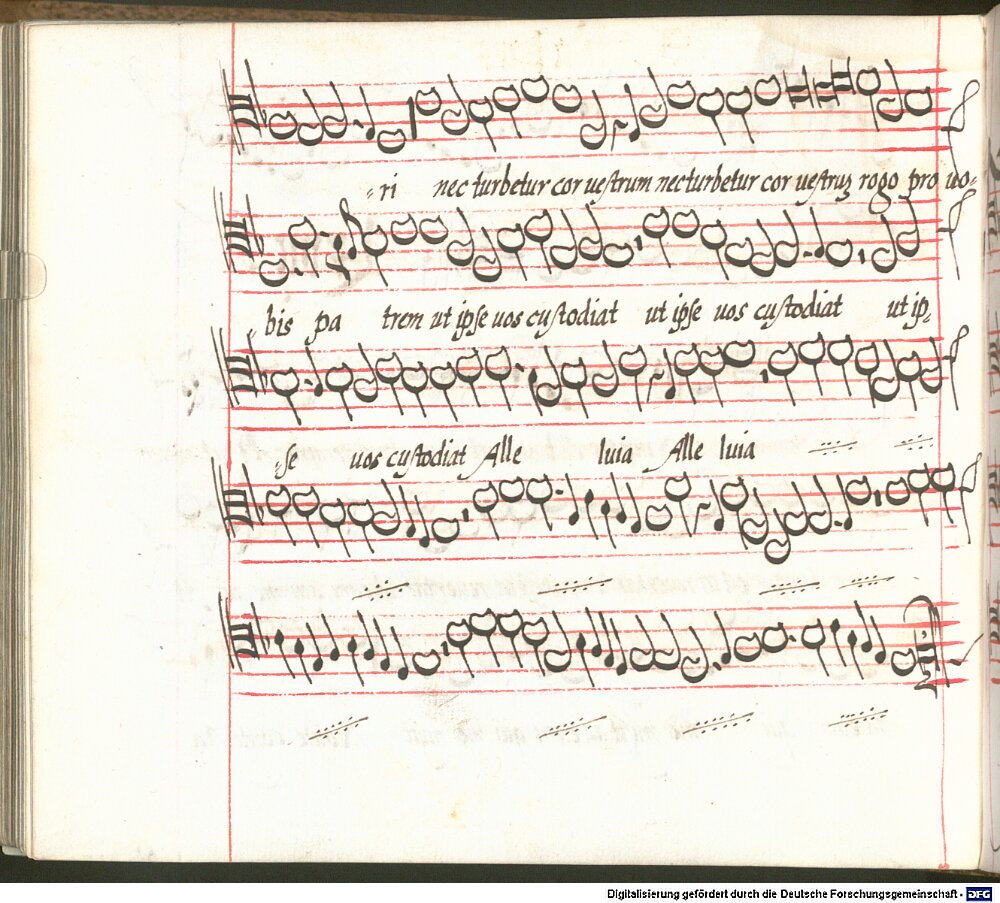 -ri nec turbetur cor uestrum nec turbetur cor uestruʒ rogo pro uo-
-bis pa trem ut ipse uos custodiat ut ipse uos custodiat ut ip-
-se uos custodiat Alle luia Alle luia
Digitalisierung gefördert durch die Deutsche Forschungsgemeinschaft - DFG